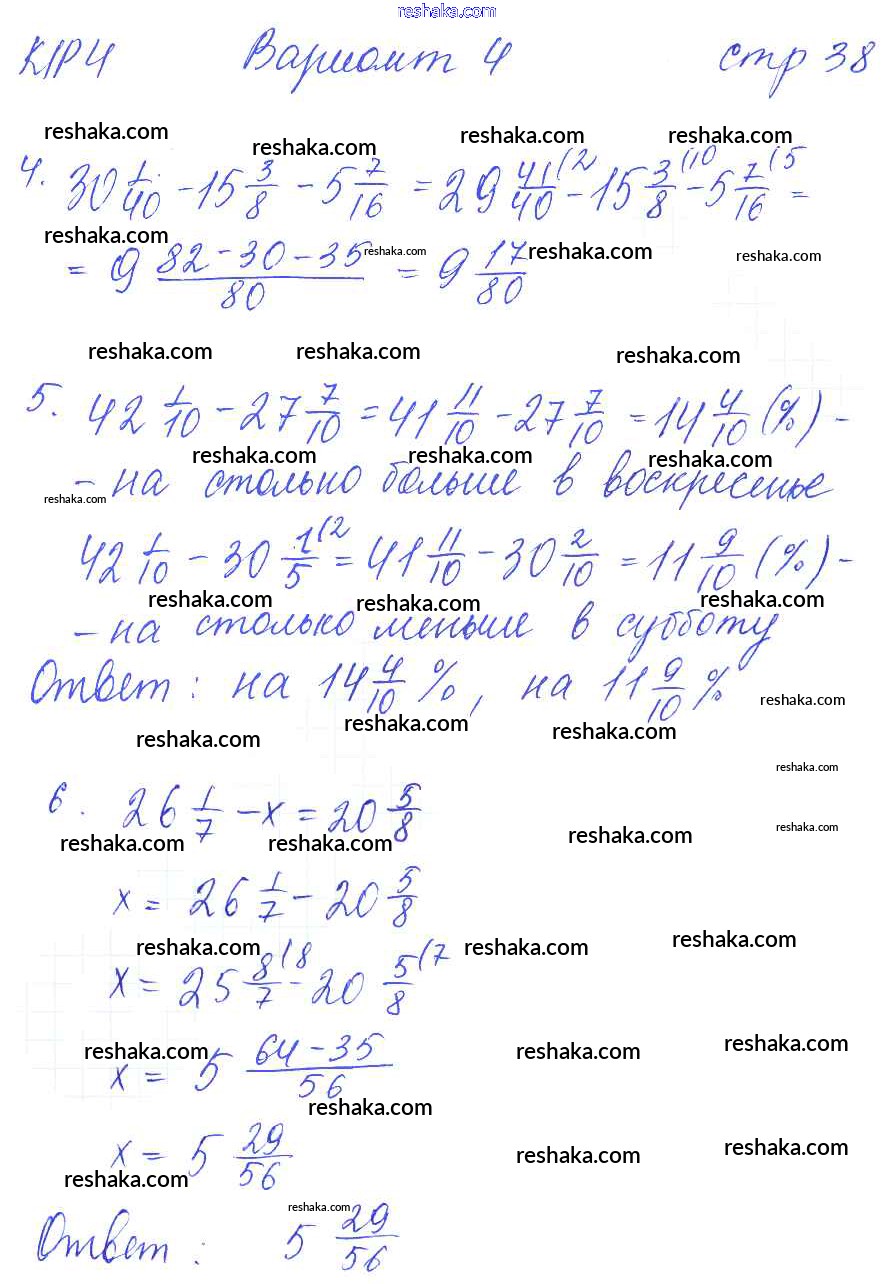 reshaka.com
К/Р 4 Вариант 4 стр 38
reshaka.com reshaka.com reshaka.com reshaka.com
4. 30 1/40 - 15 3/8 - 5 7/16 = 29 41/40 (2 - 15 3/8 (10 - 5 7/16 (5 =
reshaka.com reshaka.com reshaka.com reshaka.com
= 9 (82 - 30 - 35)/80 = 9 17/80
reshaka.com reshaka.com reshaka.com
5. 42 1/10 - 27 7/10 = 41 11/10 - 27 7/10 = 14 4/10 (%) -
reshaka.com reshaka.com reshaka.com
- на столько больше в воскресенье
reshaka.com
42 1/10 - 30 1/5 (2 = 41 11/10 - 30 2/10 = 11 9/10 (%) -
reshaka.com reshaka.com reshaka.com
- на столько меньше в субботу
Ответ: на 14 4/10 %, на 11 9/10 %
reshaka.com reshaka.com reshaka.com reshaka.com
reshaka.com
6. 26 1/7 - x = 20 5/8
reshaka.com reshaka.com reshaka.com reshaka.com
x = 26 1/7 - 20 5/8
reshaka.com reshaka.com reshaka.com
x = 25 8/7 (8 - 20 5/8 (7
reshaka.com reshaka.com reshaka.com
x = 5 (64 - 35)/56
reshaka.com
x = 5 29/56
reshaka.com reshaka.com reshaka.com
reshaka.com
Ответ: 5 29/56